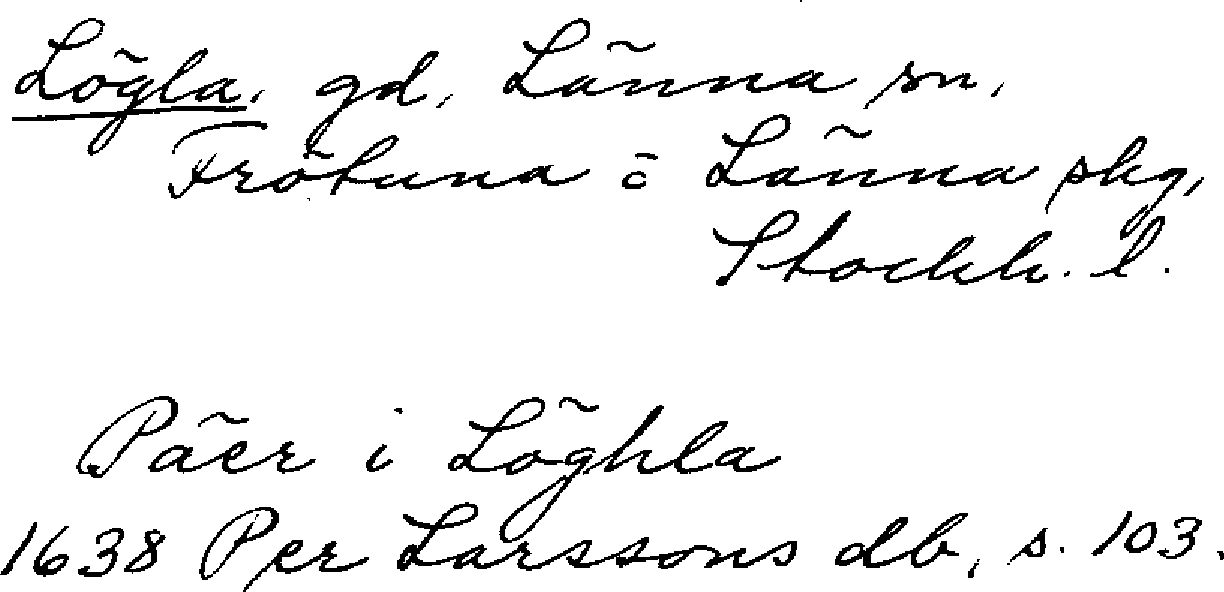 Lögla, gd, Länna sn,
Frötuna o Länna skg,
Stockh. l.
Päer i Löghla
1638 Per Larssons db, s. 103.